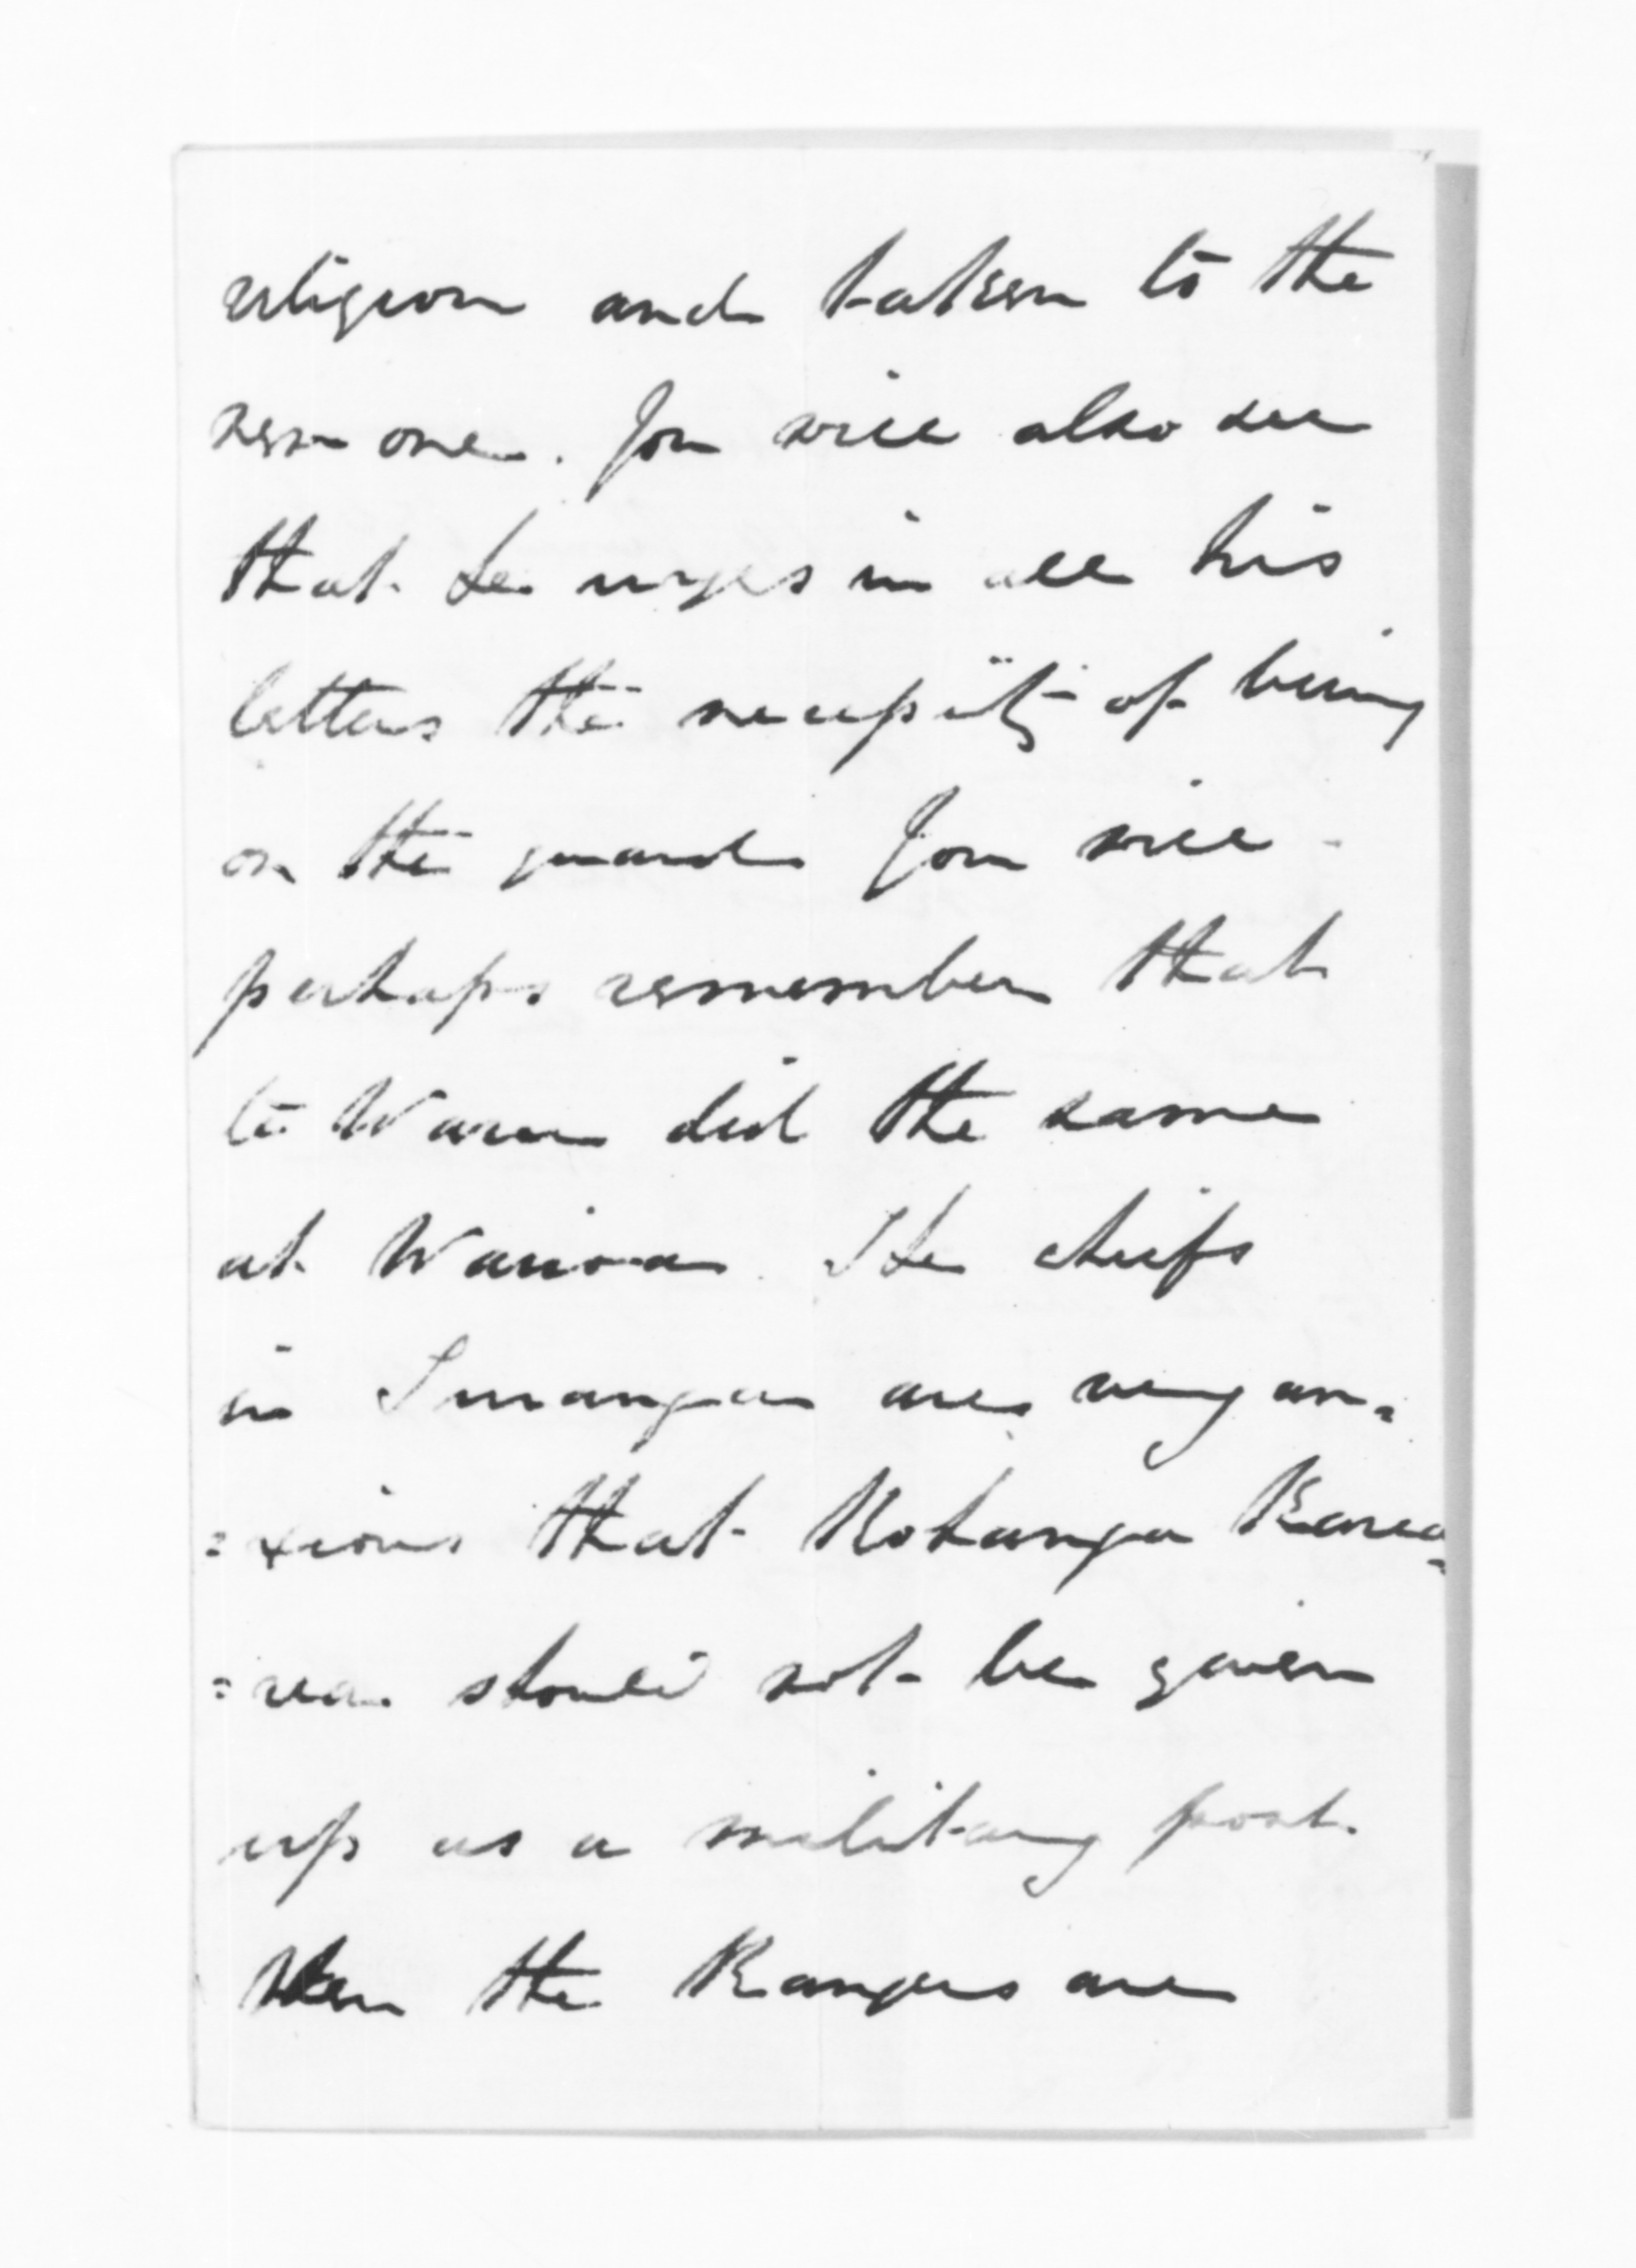 religion and taken to the
new one. You will also see
that he urges in all his
letters the necessity of being
on the guard You will
perhaps remember that
te Waru did the same
at Wairoa. The chiefs
in Turanga are very an=
=xious that Kohanga Karea=
=rea should not be given
up as a military post.
When the Rangers are